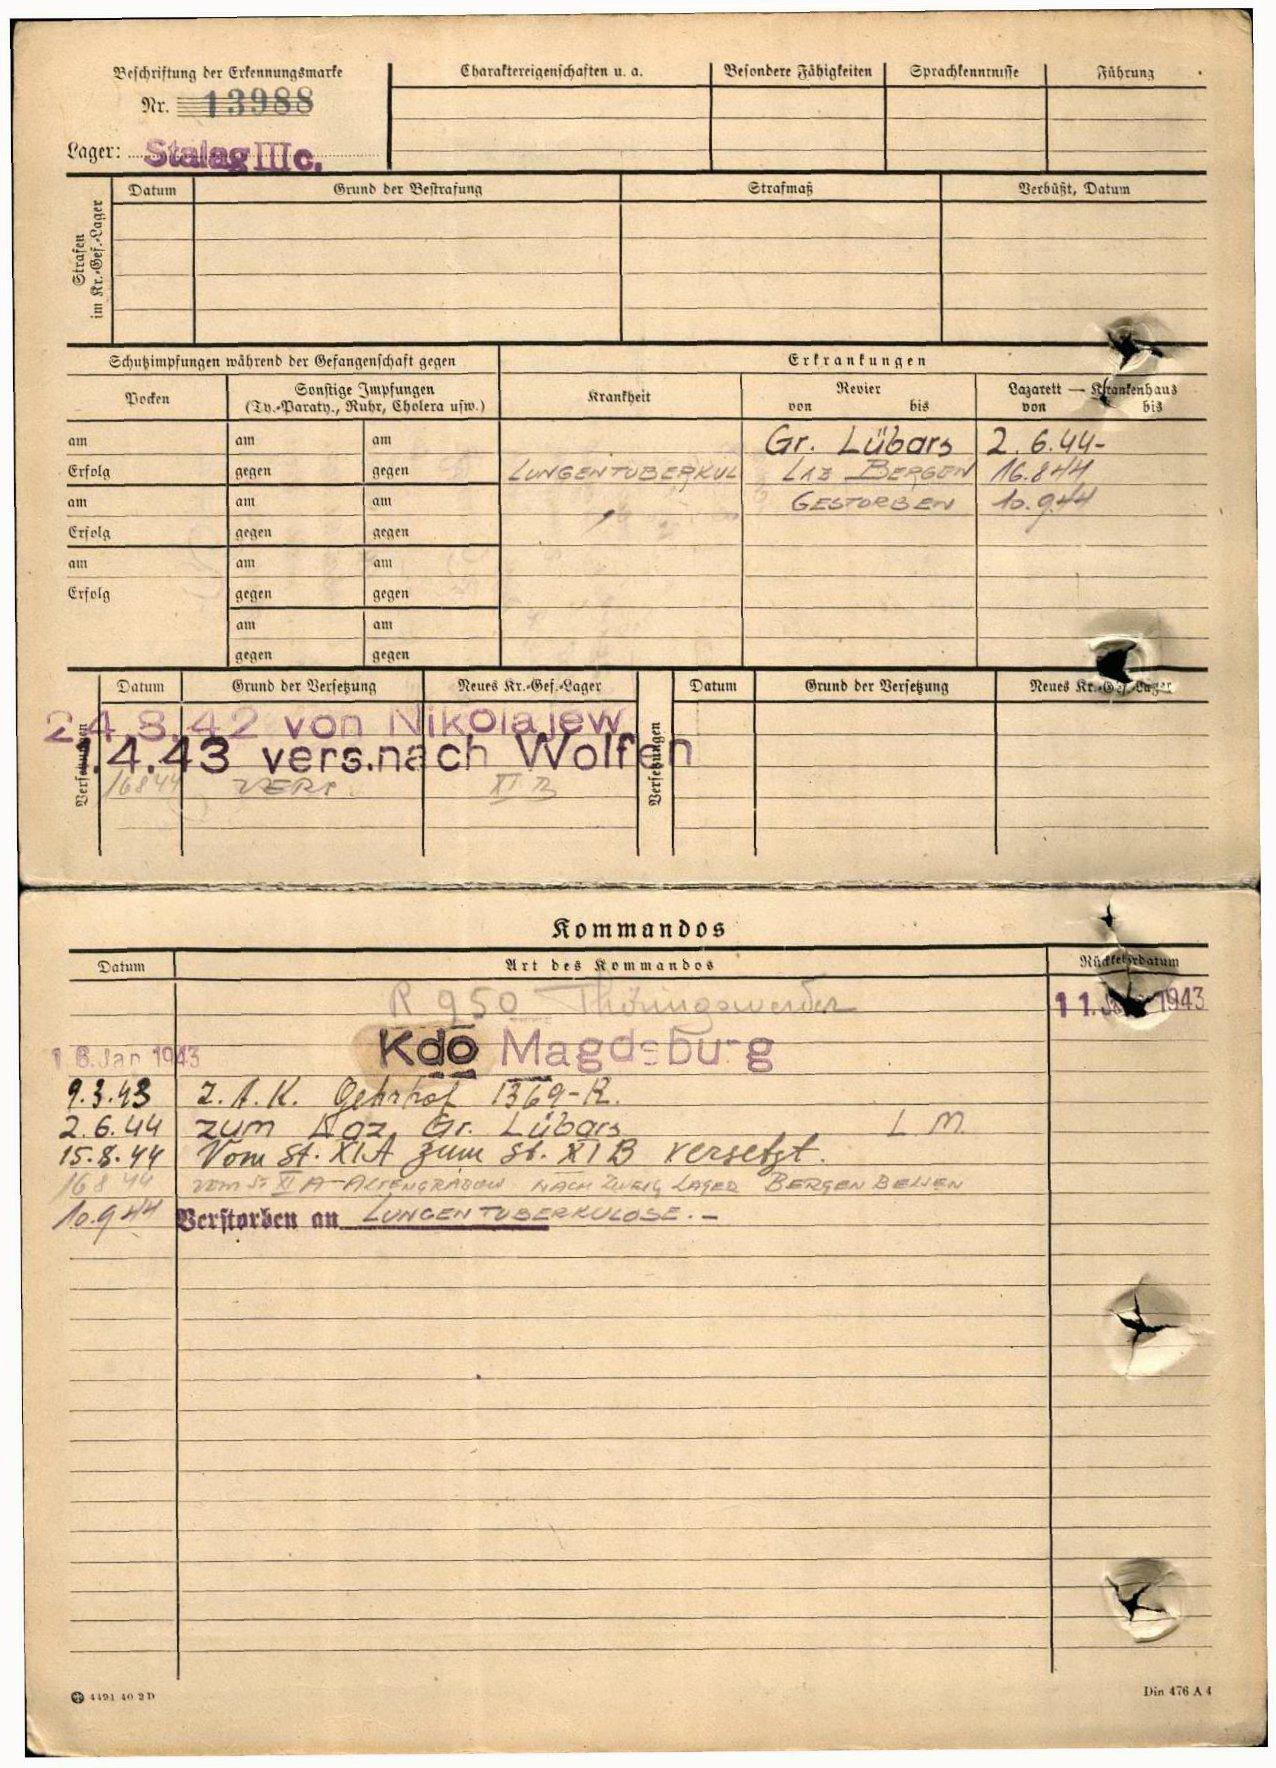 Beschriftung der Erkennungsmarke
Nr. 13988
Lager: Stalag III c.
Charaktereigenschaften u. a. Besondere Fähigkeiten Sprachkenntnisse Führung
Strafen im Kr.-Gef.-Lager
Datum Grund der Bestrafung Strafmaß Verbüßt, Datum
Schutzimpfungen während der Gefangenschaft gegen Erkrankungen
Pocken Sonstige Impfungen (Ty.-Paraty., Ruhr, Cholera usw.) Krankheit Revier von bis Lazarett — Krankenhaus von bis
am am am Gr. Lübars 2.6.44-
Erfolg gegen gegen LUNGENTUBERKUL LAZ BERGEN 16.8 44
am am am GESTORBEN 10.9 44
Erfolg gegen gegen
am am am
Erfolg gegen gegen
am am
gegen gegen
Versetzungen Datum Grund der Versetzung Neues Kr.-Gef.-Lager Versetzungen Datum Grund der Versetzung Neues Kr.-Gef.-Lager
24.8.42 von Nikolajew
1.4.43 vers.nach Wolfen
16 8 44 VERS. XI B
Kommandos
Datum Art des Kommandos Rückkehrdatum
R 950 Thüringswerder 11. 1943
18. Jan 1943 Kdo Magdeburg
9.3.43 Z.A.K. Gehrhof 1369-R.
2.6.44 zum Laz. Gr. Lübars L M
15.8.44 Vom St. XI A zum St. XI B versetzt.
16 8 44 VOM ST XI A ALTENGRABOW NACH ZWEIG LAGER BERGEN BELSEN
10.9 44 Verstorben an LUNGENTUBERKULOSE.-
4491 40 2D
Din 476 A 4